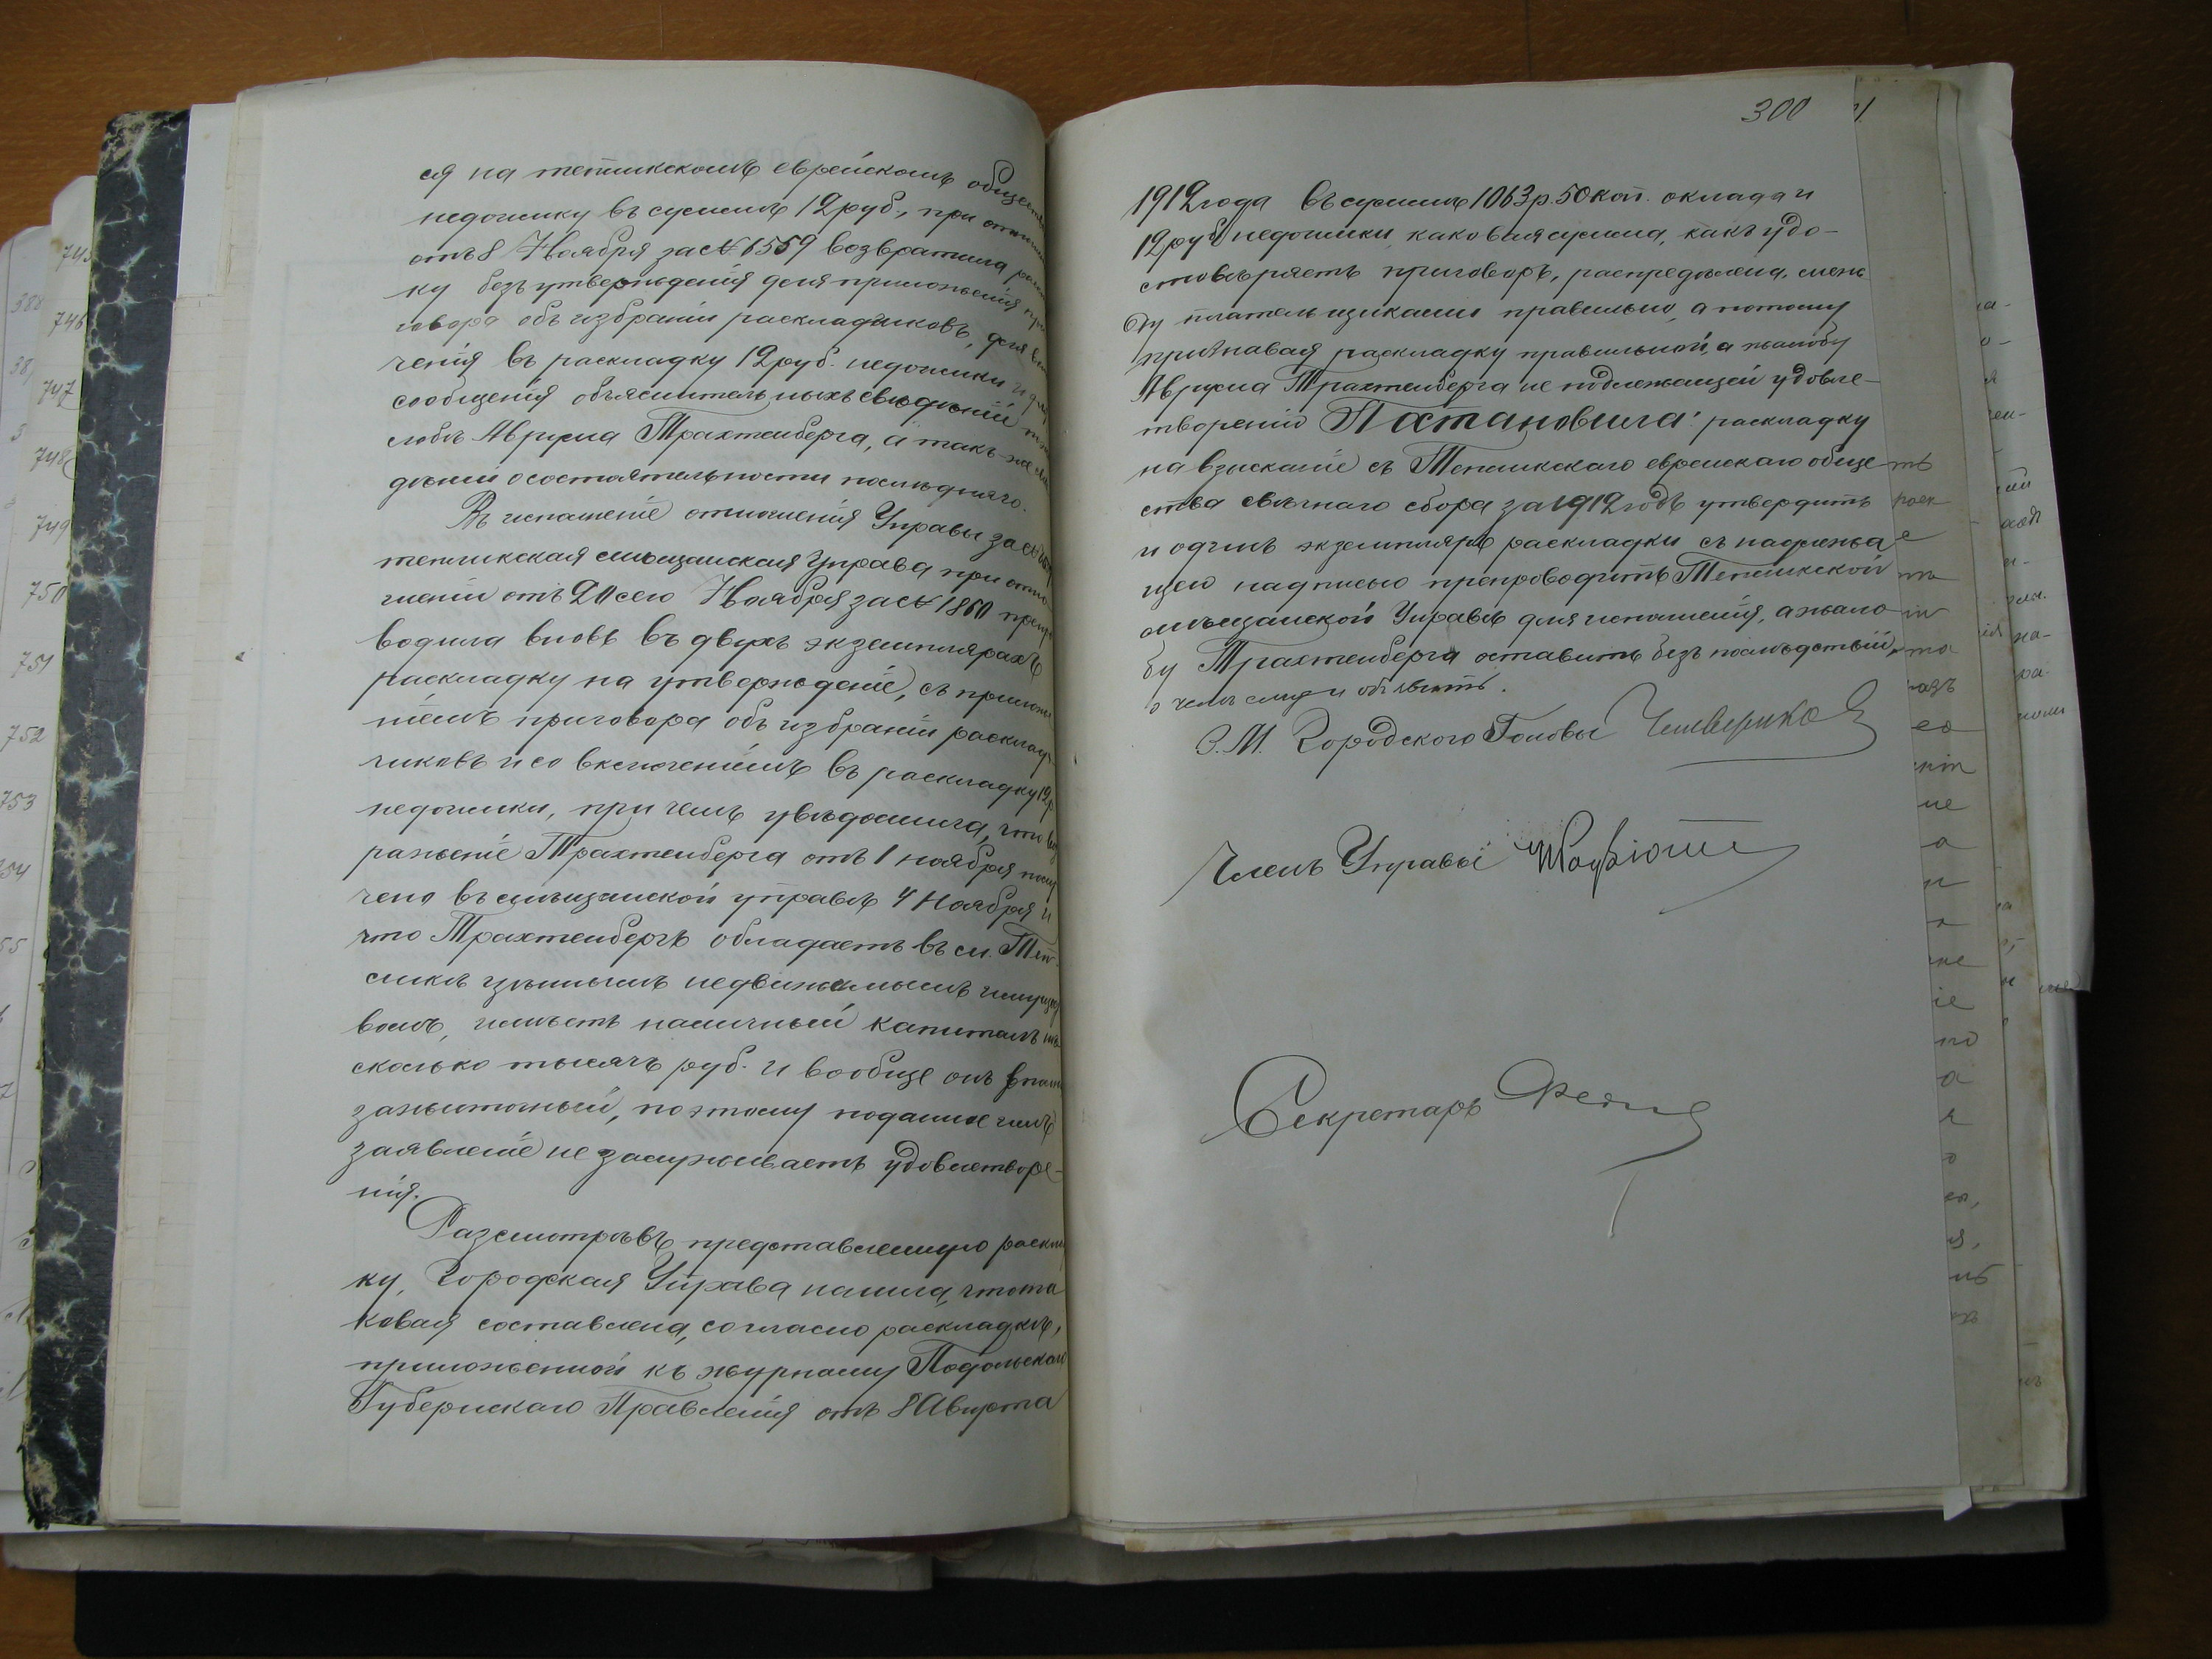 ся на тепликскомъ еврейскомъ обществѣ
недоимку въ суммѣ 12 руб., при отношеніи
отъ 8 Ноября за № 1559 возвратила расклад
ку безъ утвержденія для приложенія при
говора объ избраніи раскладчиковъ, для вклю
ченія въ раскладку 12 руб. недоимки и для
сообщенія объяснительныхъ свѣдѣній по жа
лобѣ Аврума Трахтенберга, а такъ-же свѣ
дѣній о состоятельности послѣдняго.
Въ исполненіе отношенія Управы за №
тепликская мѣщанская Управа при отно
шеніи отъ 20 сего Ноября за № 1860 препро
водила вновь въ двухъ экземплярахъ
раскладку на утвержденіе, съ приложе
ніемъ приговора объ избраніи расклад
чиковъ и со включеніемъ въ раскладку 12 р.
недоимки, при чемъ увѣдомила, что воз
раженіе Трахтенберга отъ 1 ноября полу
чено въ мѣщанской управѣ 4 Ноября и
что Трахтенбергъ обладаетъ въ м. Теп-
ликѣ цѣннымъ недвижимымъ имущест
вомъ, имѣетъ наличный капиталъ нѣ
сколько тысячъ руб. и вообще онъ вполнѣ
зажиточный, поэтому поданное имъ
заявленіе не заслуживаетъ удовлетворе-
нія.
Разсмотрѣвъ представленную расклад
ку, Городская Управа нашла, что та
ковая составлена, согласно раскладкѣ,
приложенной къ журналу Подольскаго
Губернскаго Правленія отъ 8 Августа
300
1912 года въ суммѣ 1063 р. 50 коп. оклада и
12 руб недоимки, каковая сумма, какъ удо-
стовѣряетъ приговоръ, распредѣлена, меж
ду плательщиками правильно, а потому
признавая раскладку правильной, а жалобу
Аврума Трахтенберга не подлежащей удовле-
творенію Постановила: раскладку
на взысканіе съ Тепликскаго еврейскаго обще
ства свѣчнаго сбора за 1912 годъ утвердить
и одинъ экземпляръ раскладки съ надлежа
щею надписью препроводить Тепликской
мѣщанской Управѣ для исполненія, а жало
бу Трахтенберга оставить безъ послѣдствій,
о чемъ ему и объявить.
З. М. Городского Головы
Членъ Управы
Секретарь
745
746
747
748
749
750
751
752
753